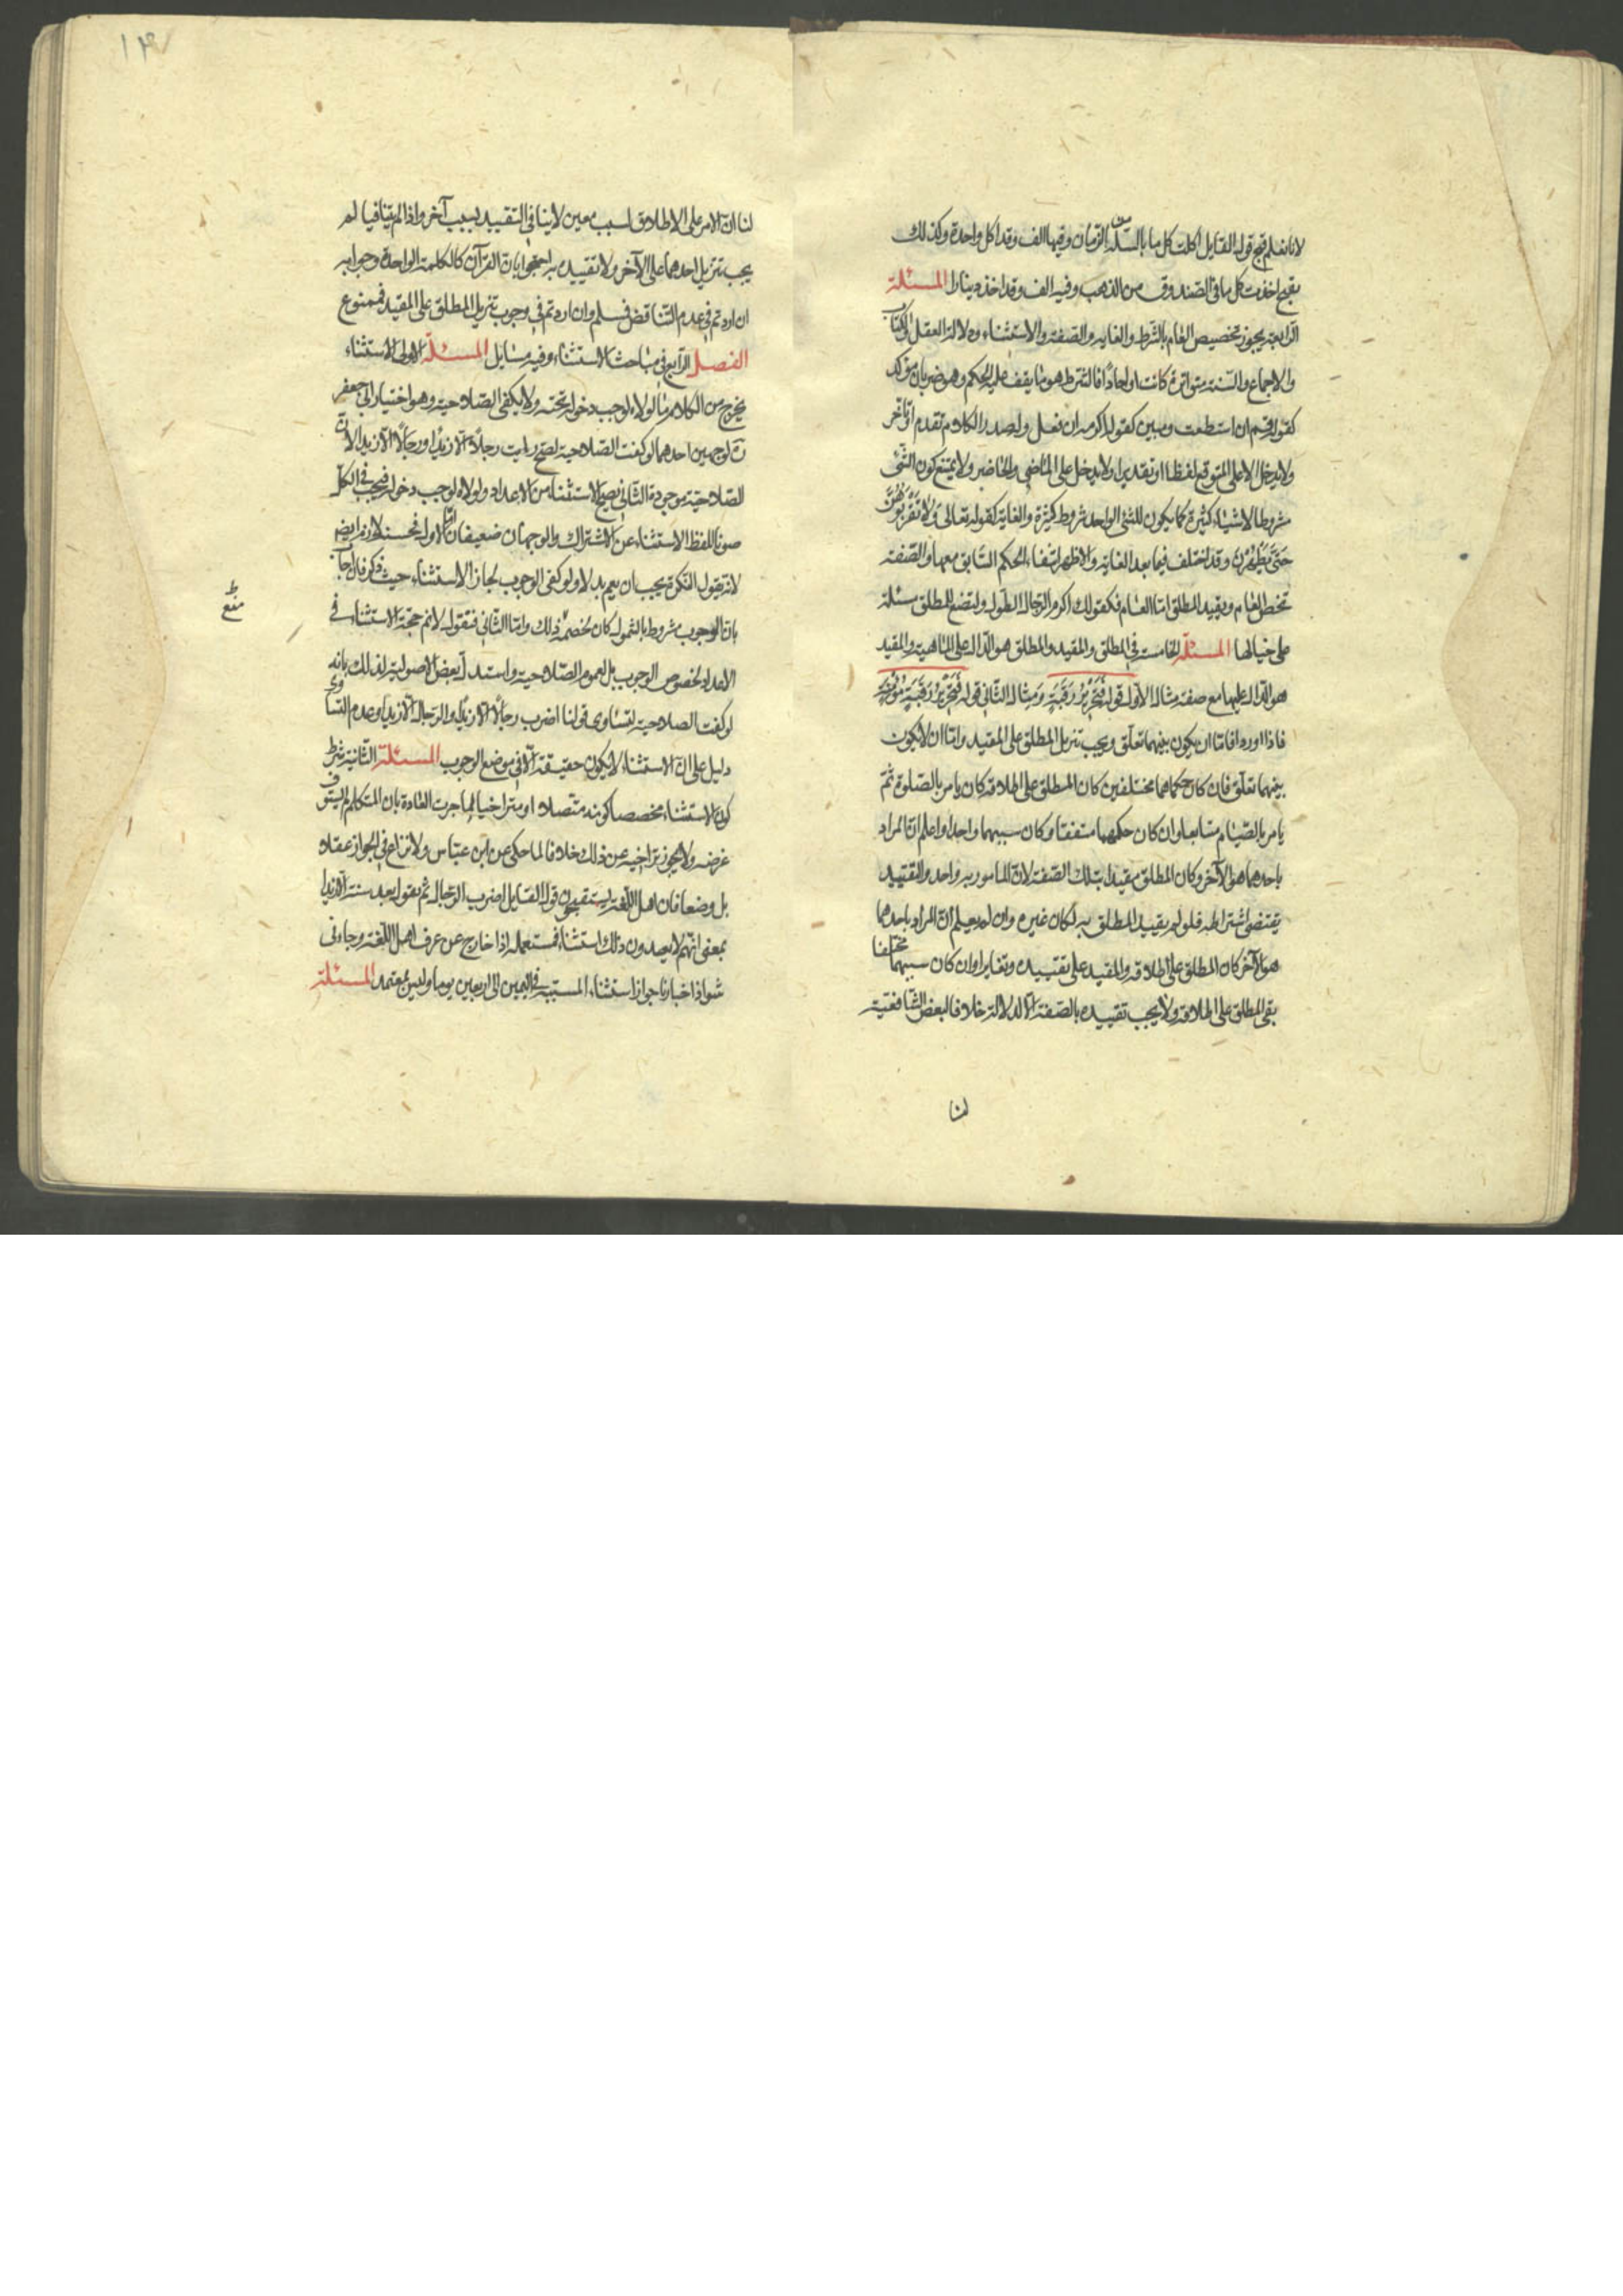 لانا نعلم قبح قول القايل اكلت كل ما بالسلة من الرّمان وفيها الف وقد اكل واحدة وكذلك
يقبح اخذت كل ما فى الصّندوق من الذهب وفيه الف وقد اخذ دينارا المسئلة
الرّابعة يجوز تخصيص العام بالشّرط والغاية والصّفة والاستثناء ودلالة العقل والكتاب
والاجماع والسّنة متواترة كانت او احادا فالشّرط هو ما يقف عليه الحكم وهو ضربان مؤكد
كقوله قم ان استطعت ومبين كقوله اكرمه ان فعل وله صدر الكلام تقدم او تأخّر
ولا يدخل الا على المتوقع لفظا او تقديرا ولا يدخل على الماضى والحاضر ولا يمتنع كون الشّئ
شروطا لاشياء كثيرة كما يكون للشئ الواحد شروط كثيرة والغاية كقوله تعالى وَلا تَقْرَبُوهُنَّ
حَتَّى يَطْهُرْنَ وقد اختلف فيما بعد الغاية والاظهر انتفاء الحكم السّابق معها والصّفة
تخصّ العام ويقيد المطلق امّا العام فكقولك اكرم الرّجال الطّول
على حيالها المسئلة الخامسة فى المطلق والمقيد والمطلق هو الدّال على الماهية والمقيد
هو الدّال عليها مع صفة مثال الاوّل قوله فَتَحْرِيرُ رَقَبَةٍ ومثال الثّانى قوله فَتَحْرِيرُ رَقَبَةٍ مُؤْمِنَةٍ
فاذا اوردا فامّا ان يكون بينهما تعلّق ويجب تنزيل المطلق على المقيد وامّا ان لا يكون
بينهما تعلّق فان كان حكماهما مختلفين كان المطلق على اطلاقه كان يامر بالصّلوة ثمّ
يامر بالصّيام متتابعا وان كان حكمهما متفقا وكان سببهما واحدا واعلم انّ المراد
باحدهما هو الآخر وكان المطلق مقيدا بتلك الصّفة لانّ المأمور به واحد والتقييد
يقتضى اشتراطه فلو لم يقيد المطلق به لكان غيره وان لم يعلم انّ المراد باحدهما
هو الآخر كان المطلق على اطلاقه والمقيد على تقييده وتغايرا وان كان سببهما مختلفا
بقى المطلق على اطلاقه ولا يجب تقييده بالصّفة الّا لدلالة خلافا لبعض الشّافعيّة
لنا
١٣
لنا انّ الامر على الاطلاق لسبب معين لا ينافى التقييد بسبب آخر واذا لم يتنافيا لم
يجب تنزيل احدهما على الآخر ولا تقييده به احتجّوا بان القرآن كالكلمة الواحدة وجوابه
ان اردتم فى عدم التّناقض فسلم وان اردتم فى وجوب تنزيل المطلق على المقيد فممنوع
الفصل الرّابع فى مباحث الاستثناء وفيه مسايل المسئلة الاولى الاستثناء
يخرج من الكلام ما لولاه لوجب دخوله تحته ولا يكفى الصّلاحية وهو اختيار ابى جعفر
ره لوجهين احدهما لو كفت الصّلاحية لصحّ رايت رجلًا الّا زيدًا ورجالًا الّا زيدا لان
الصّلاحيّة موجودة الثّانى يصحّ الاستثناء من الاعداد ولولاه لوجب دخوله فيجب فى الكلّ
صونا للفظ الاستثناء عن الاشتراك والوجهان ضعيفان امّا الاول
لانه يقول النكرة يجب ان يعم بدلا ولو كفى الوجوب لجاز الاستثناء حيث ذكر فان اجاب
بانّ الوجوب مشروط بالشّمول كان لخصمه ذلك وامّا الثّانى فنقول لا نم حجّة الاستثناء فى
منع
الاعداد لخصوص الوجوب بل لعموم الصّلاحية واستدل بعض الاصولية لذلك بانه
لو كفت الصلاحية لتساوى قولنا اضرب رجالًا الّا زيدًا والرّجال الّا زيدا وعدم التساوى
دليل على انّ الاستثناء لا يكون حقيقة الّا فى موضع الوجوب المسئلة الثّانية شرط
كون الاستثناء مخصصا كونه متّصلا او متراخيا لما جرت العادة بان المتكلم لم يستوف
غرضه ولا يجوز تراخيه عن ذلك خلافا لما حكى عن ابن عبّاس ولا نزاع فى الجواز عقلا
بل وضعا فان اهل اللّغة يستقبحون قول القايل اضرب الرّجال ثم يقول بعد سنة الّا زيدا
بمعنى انّهم لا يعدون ذلك استثناء فمستعمله اذا خارج عن عرف اهل اللّغة وجاء فى
شواذ اخبارنا جواز استثناء المستثنيه فى اليمين الى اربعين يوما وليس بمعتمد المسئلة